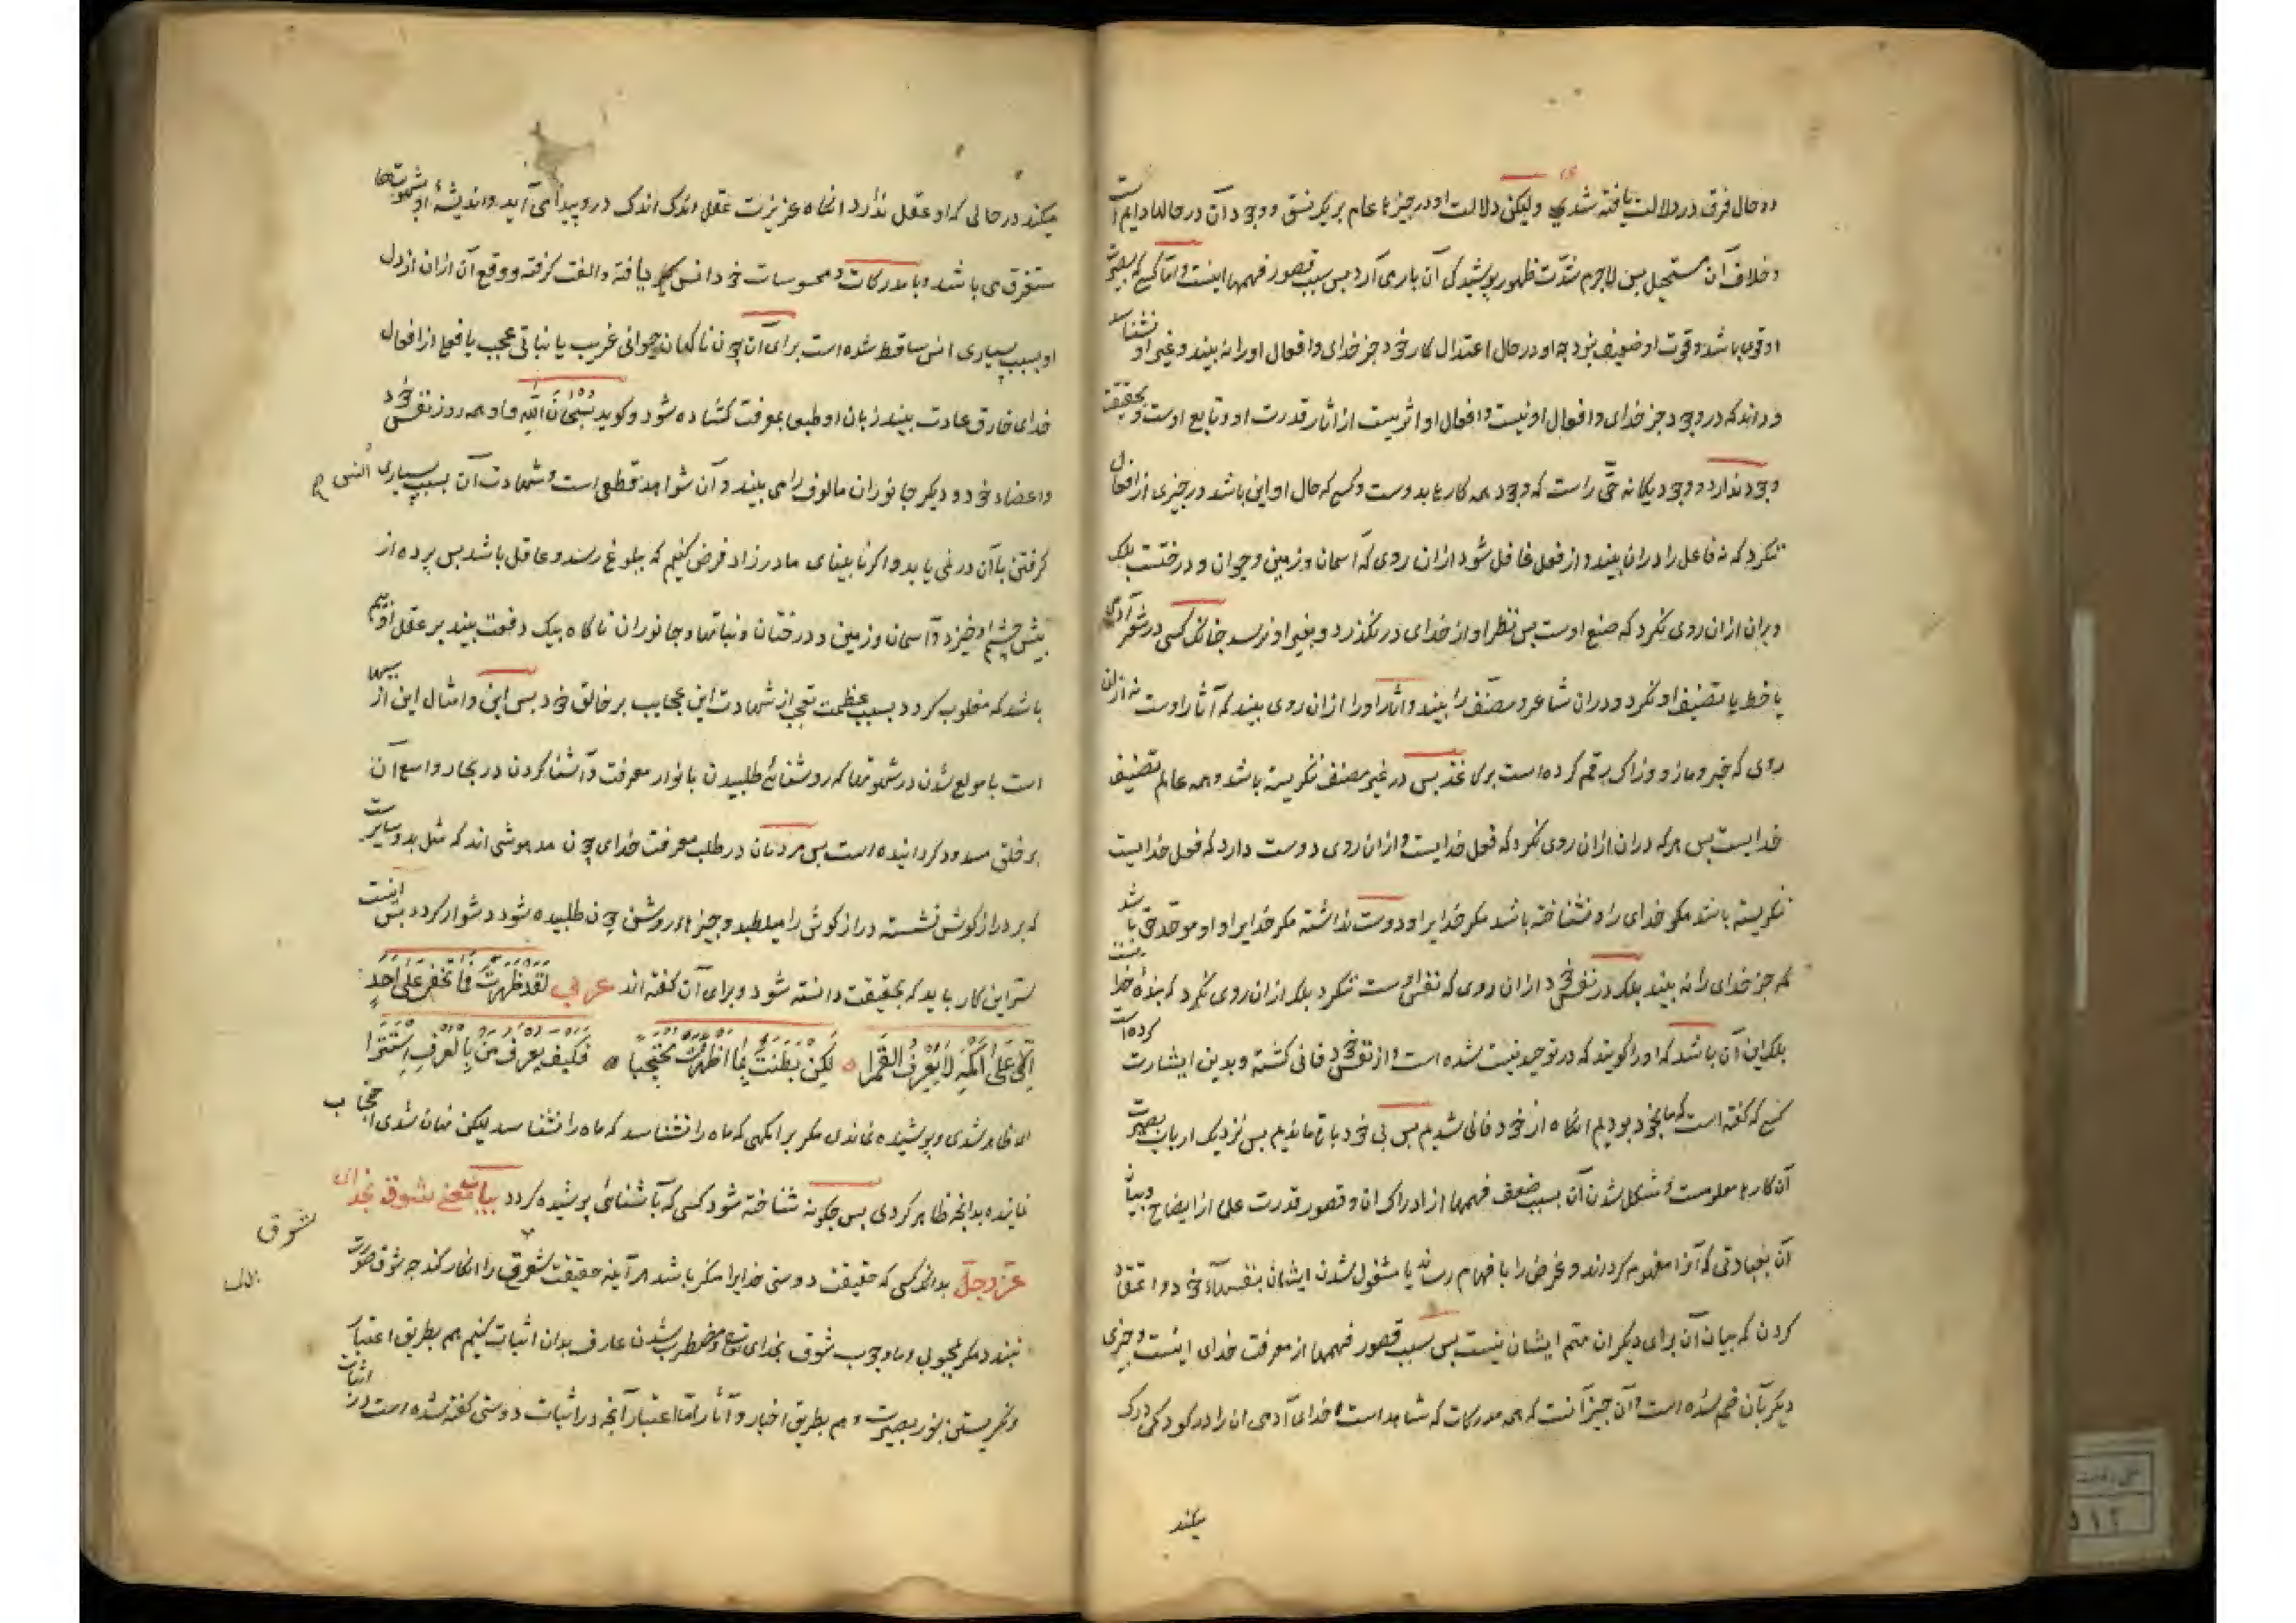 دو حال فرق در دلالت یافته شدی ولیکن دلالت او در چیزها عام بر یک نسق و وجود آن در حالها دایم است
و خلاف آن مستحیل پس لاجرم شدّت ظهور پوشیدگی آن باری آرد پس سبب قصور فهمها اینست و امّا کسی که بصیرت
او قوی باشد و قوت او ضعیف نبود چه او در حال اعتدال کار خود جز خدای و افعال او را نه بیند و غیر او نشناسد
و داند که در وجود جز خدای و افعال او نیست و افعال او اثریست از آثار قدرت او و تابع اوست و بحقیقت
وجود ندارد و وجود یکانه حق راست که وجود همه کارها بدوست و کسی که حال او این باشد در چیزی از افعال
ننکرد که نه فاعل را دران بیند و از فعل غافل شود ازان روی که آسمان و زمین و حیوان و درختست بلکه
دران ازان روی نکرد که صنع اوست پس نظر او از خدای در نکذرد و بغیر او نرسد چنانک کسی در شعر آدمی
یا خط یا تصنیف او نکرد و دران شاعر و مصنف را بیند و آثار او را ازان روی بیند که آثار اوست نه ازان
روی که حبر و مازو و زاک برقم کرده است بر کاغذ پس در غیر مصنف ننکریسته باشد و همه عالم تصنیف
خدایست پس هر که دران ازان روی نکرد که فعل خدایست و ازان روی دوست دارد که فعل خدایست
ننکریسته باشد مکر خدای را و نشناخته باشد مکر خدایرا و دوست نداشته مکر خدایرا و او موحّد حق باشد
که جز خدای را نه بیند بلکه در نفس خود ازان روی که نفس اوست ننکرد بلک ازان روی نکرد که بندهٔ خداست
بلک این آن باشد که او را کویند که در توحید نیست شده است و از نفس خود فانی کشته و بدین اشارت کرده است
کسی که کفته است که ما بخود بودیم انکاه از خود فانی شدیم پس بی خود باقی ماندیم پس نزدیک ارباب بصیرت
آن کارها معلومست و مشکل شدن آن بسبب ضعف فهمها از ادراک ان و قصور قدرت علما از ایضاح و بیان
آن بعبارتی که آنرا مفهوم کرداند و غرض را با فهام رساند یا مشغول شدن ایشان بنفسهاء خود و اعتقاد
کردن که بیان آن برای دیکران مهم ایشان نیست پس سبب قصور فهمها از معرفت خدای اینست و چیزی
دیکر بآن ضم شده است و آن چیز آنست که همه مدرکات که شاهد است خدای آدمی ان را در کودکی درک
میکند
میکند در حالی که او عقل ندارد انکاه غریزت عقل اندک اندک درو پیدا می آید و اندیشهٔ او بشهوتها
مستغرق می باشد و با مدرکات و محسوسات خود انس یافته و الفت کرفته و وقع آن ازان از دل
او بسبب بسیاری انس ساقط شده است برای آن چون ناکهان حیوانی غریب یا نباتی عجب یا فعلی از افعال
خدای خارق عادت بیند زبان او طبعا بمعرفت کشاده شود و کوید سُبْحَانَ اللّٰه و او همه روز نفس خود
و اعضاء خود و دیکر جانوران مالوف را می بیند و آن شواهد قطعی است و شهادت آن بسبب بسیاری انس
کرفتن با آن در نمی یابد و اکر نابینای مادرزاد فرض کنیم که ببلوغ رسد و عاقل باشد پس پرده از
پیش چشم او خیزد و آسمان و زمین و درختان و نباتها و جانوران ناکاه بیک دفعت بیند بر عقل او بیم
باشد که مغلوب کردد بسبب عظمت تعجب از شهادت این عجایب بر خالق خود پس این و امثال این از سببها
است با مولع شدن در شهوتها که روشنائی طلبیدن بانوار معرفت و آشنا کردن در بحار واسع آن
بر خلق مسدود کردانیده است پس مردمان در طلب معرفت خدای چون مدهوشی اند که مثل بدو سایرست
که بر درازکوش نشسته درازکوش را میطلبد و چیزهاء روشن چون طلبیده شود دشوار کردد پس اینست
سرّ این کار باید که بحقیقت دانسته شود و برای آن کفته اند عربی لَقَدْ ظَهَرْتَ فَمَا تَخْفَى عَلَى اَحَدٍ
اِلَّا عَلَى اَكْمَهٍ لَا يَعْرِفُ القَمَرَا ٥ لٰكِنْ بَطَنْتَ بِمَا اَظْهَرْتَ مُحْتَجِبًا ٥ فَكَيْفَ يُعْرَفُ مَنْ بِالْعُرْفِ اسْتَتَرَا
ای ظاهر شدی و پوشیده نماندی مکر بر اکمهی که ماه را نشناسد لیکن نهان شدی احتجاب
نماینده بدانچه ظاهر کردی پس چکونه شناخته شود کسی که بآشنائی پوشیده کردد بیان معنی شوق بخدای
شوق
عزّ و جلّ بدانک کسی که حقیقت دوستی خدایرا منکر باشد هر آینه حقیقت شوق را انکار کند چه شوق صورت
نبندد مکر بمحبوبی و ما وجوب شوق بخدای تع و مضطر شدن عارف بدان اثبات کنیم هم بطریق اعتبار
و نکریستن بنور بصیرت و هم بطریق اخبار و آثار امّا اعتبار آنچه در اثبات دوستی کفته شده است در اثبات